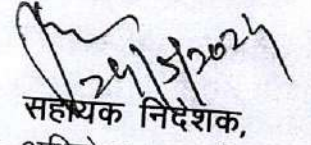 24/5/2024
सहायक निदेशक,